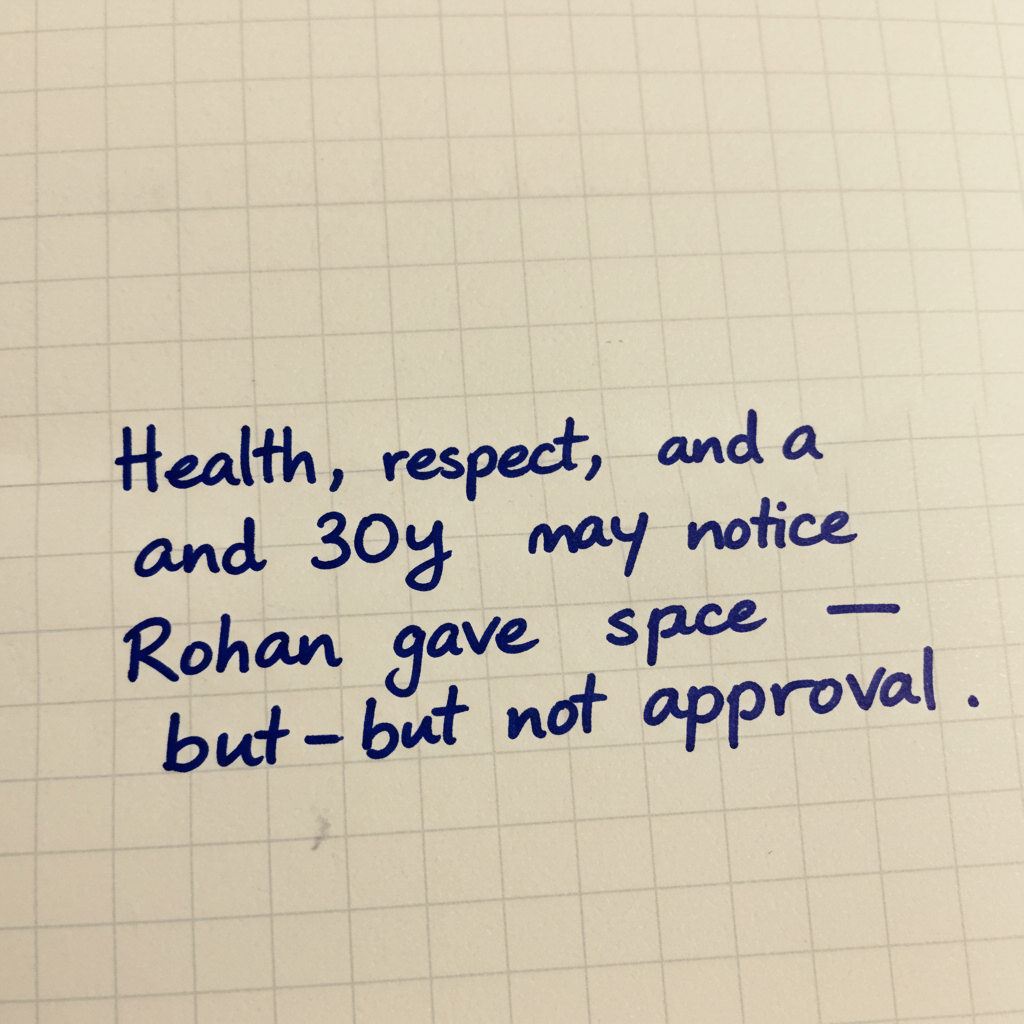 Health, respect, and a
and 30y may notice
Rohan gave space —
but – but not approval.